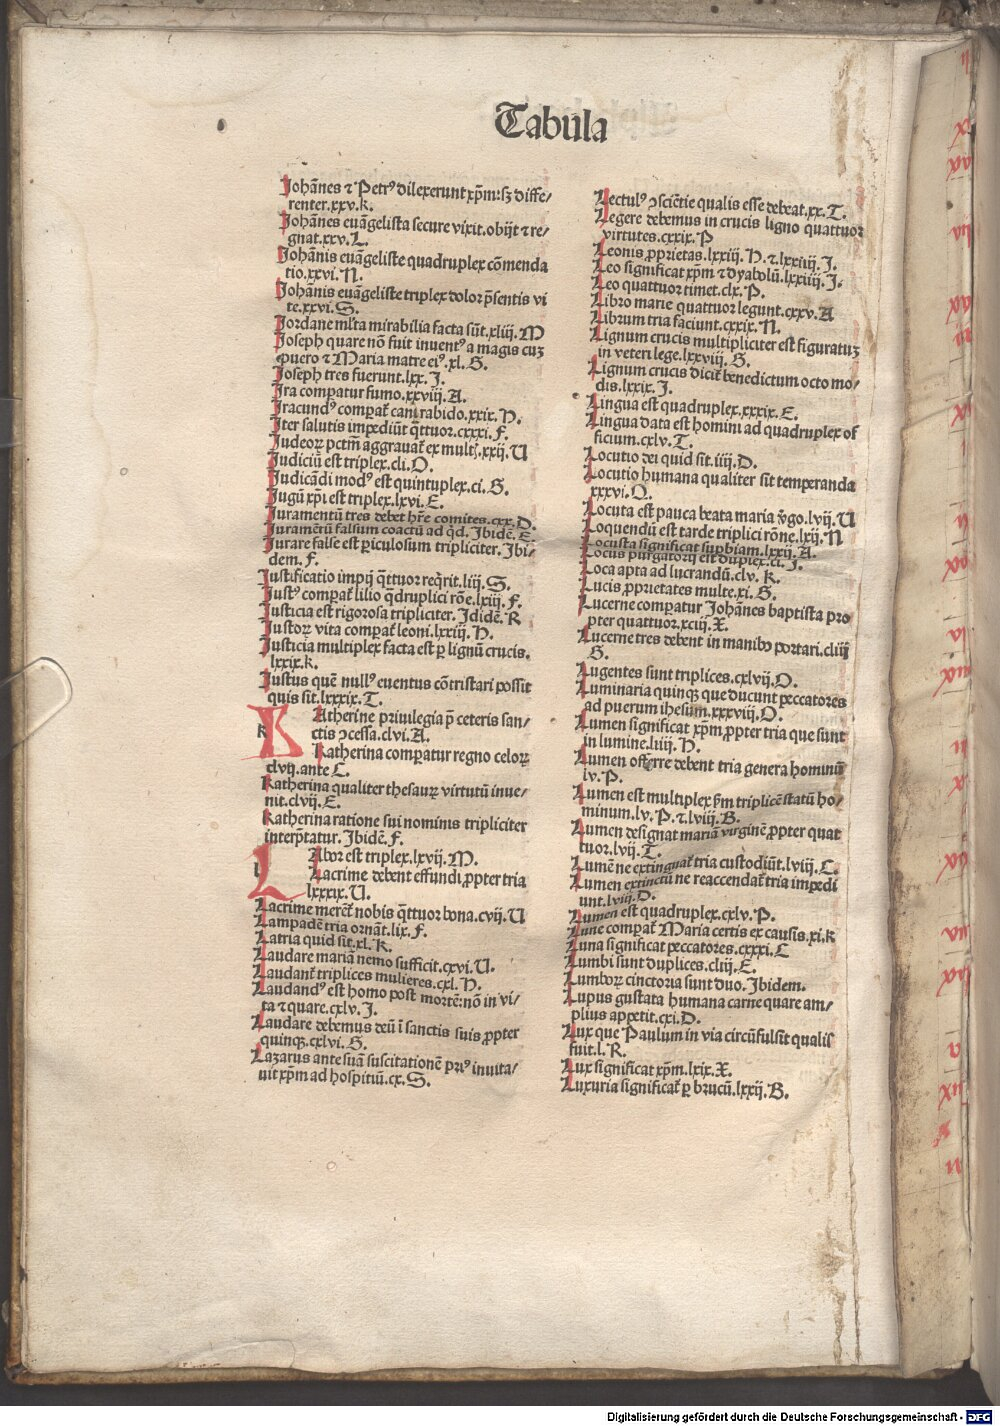 Tabula
Johānes ⁊ Petrꝰ dilexerunt xp̄m:sꝫ diffe/
renter.xxv.k.
Johānes euāgelista secure vixit.obijt ⁊ re/
gnat.xxv.L.
Johānis euāgeliste quadruplex cōmenda
tio.xxvi.N.
Johānis euāgeliste triplex dolor p̄sentis vi
te.xxvi.S.
Jordane ml̓ta mirabilia facta sūt.xliij.M
Joseph quare nō fuit inuentꝰ a magis cuꝫ
puero ⁊ Maria matre eiꝰ.xl.G.
Joseph tres fuerunt.lxx.J.
Ira comꝑatur fumo.xxviij.A.
Iracundꝰ comꝑat̄ cani rabido.xxix.H.
Iter salutis impediūt q̄ttuor.cxxxi.F.
Judeoꝝ pctm̄ aggrauat̄ ex multꝭ.xxij.U
Judiciū est triplex.cli.O.
Judicādi modꝰ est quintuplex.ci.G.
Jugū xp̄i est triplex.lxvi.E.
Juramentū tres debet hr̄e comites.cxx.D.
Juramētū falsum coactū ad qd. Ibidē.E
Jurare false est ꝑiculosum tripliciter. Ibi/
dem.F.
Justificatio impij q̄ttuor reqrit.liij.S.
Justꝰ comꝑat̄ lilio qdruplici rōe.lxiij.F.
Justicia est rigorosa tripliciter. Ididē.R
Justoꝝ vita comꝑat̄ leoni.lxxiij.H.
Justicia multiplex facta est ꝑ lignū crucis.
lxxix.k.
Justus quē nullꝰ euentus cōtristari possit
quis sit.lxxxix.T.
k KAtherine priuilegia p̄ ceteris san/
ctis ↄcessa.clvi.A.
Katherina comꝑatur regno celoꝝ
clvij.ante C.
Katherina qualiter thesauꝝ virtutū inue/
nit.clvij.E.
Katherina ratione sui nominis tripliciter
interp̄tatur. Ibidē.F.
l LAbor est triplex.lxvij.M.
Lacrime debent effundi ꝓpter tria
lxxxix.U.
Lacrime meret̄ nobis q̄ttuor bona.cvij.U
Lampadē tria ornāt.lix.F.
Latria quid sit.xl.K.
Laudare mariā nemo sufficit.cxvi.U.
Laudant̄ triplices mulieres.cxl.H.
Laudandꝰ est homo post mortē:nō in vi/
ta ⁊ quare.cxlv.J.
Laudare debemus deū ī sanctis suis ꝓpter
quinqꝫ.cxlvi.G.
Lazarus ante suā suscitationē priꝰ inuita/
uit xp̄m ad hospitiū.cx.S.
Lectulꝰ ↄsciētie qualis esse debeat.xx.T.
Legere debemus in crucis ligno quattuor
virtutes.cxxix.P
Leonis ꝓprietas.lxxiij.H.⁊.lxxiiij.J.
Leo significat xp̄m ⁊ dyabolū.lxxiiij.J.
Leo quattuor timet.clx.P.
Libro marie quattuor legunt.cxxv.A
Librum tria faciunt.cxxix.N.
Lignum crucis multipliciter est figuratuꝫ
in veteri lege.lxxviij.G.
Lignum crucis dicit̄ benedictum octo mo/
dis.lxxix.J.
Lingua est quadruplex.xxxix.E.
Lingua data est homini ad quadruplex of
ficium.cxlv.T.
Locutio dei quid sit.iiij.D.
Locutio humana qualiter sit temperanda
xxxvi.Q.
Locuta est pauca beata maria ꝟgo.lvij.U
Loquendū est tarde triplici rōne.lxij.N
Locusta significat suꝑbiam.lxxij.A.
Locus purgatorij est duplex.ci.J.
Loca apta ad lucrandū.clv.K.
Lucis ꝓprietates multe.xi.G.
Lucerne comꝑatur Johānes baptista pro
pter quattuor.xciij.X.
Lucerne tres debent in manibꝰ portari.cliij
G.
Lugentes sunt triplices.cxlvij.O.
Luminaria quinqꝫ que ducunt peccatores
ad puerum ihesum.xxxviij.O.
Lumen significat xp̄m ꝓpter tria que sunt
in lumine.liiij.H.
Lumen offerre debent tria genera hominū
lv.P.
Lumen est multiplex ẜm triplicē statū ho/
minum.lv.P.⁊.lviij.B.
Lumen designat mariā virginē ꝓpter quat
tuor.lvij.T.
Lumē ne extinguat̄ tria custodiūt.lviij.C.
Lumen extinctū ne reaccendat̄ tria impedi
unt.lviij.D.
Lumen est quadruplex.cxlv.P.
Lune comꝑat̄ Maria certis ex causis.xi.k
Luna significat peccatores.cxxxi.C
Lumbi sunt duplices.cliij.E.
Lumboꝝ cinctoria sunt duo. Ibidem.
Lupus gustata humana carne quare am/
plius appetit.cxi.D.
Lux que Paulum in via circūfulsit qualis
fuit.l.R.
Lux significat xp̄m.lxix.X.
Luxuria significat̄ ꝑ brucū.lxxij.B.
Digitalisierung gefördert durch die Deutsche Forschungsgemeinschaft - DFG